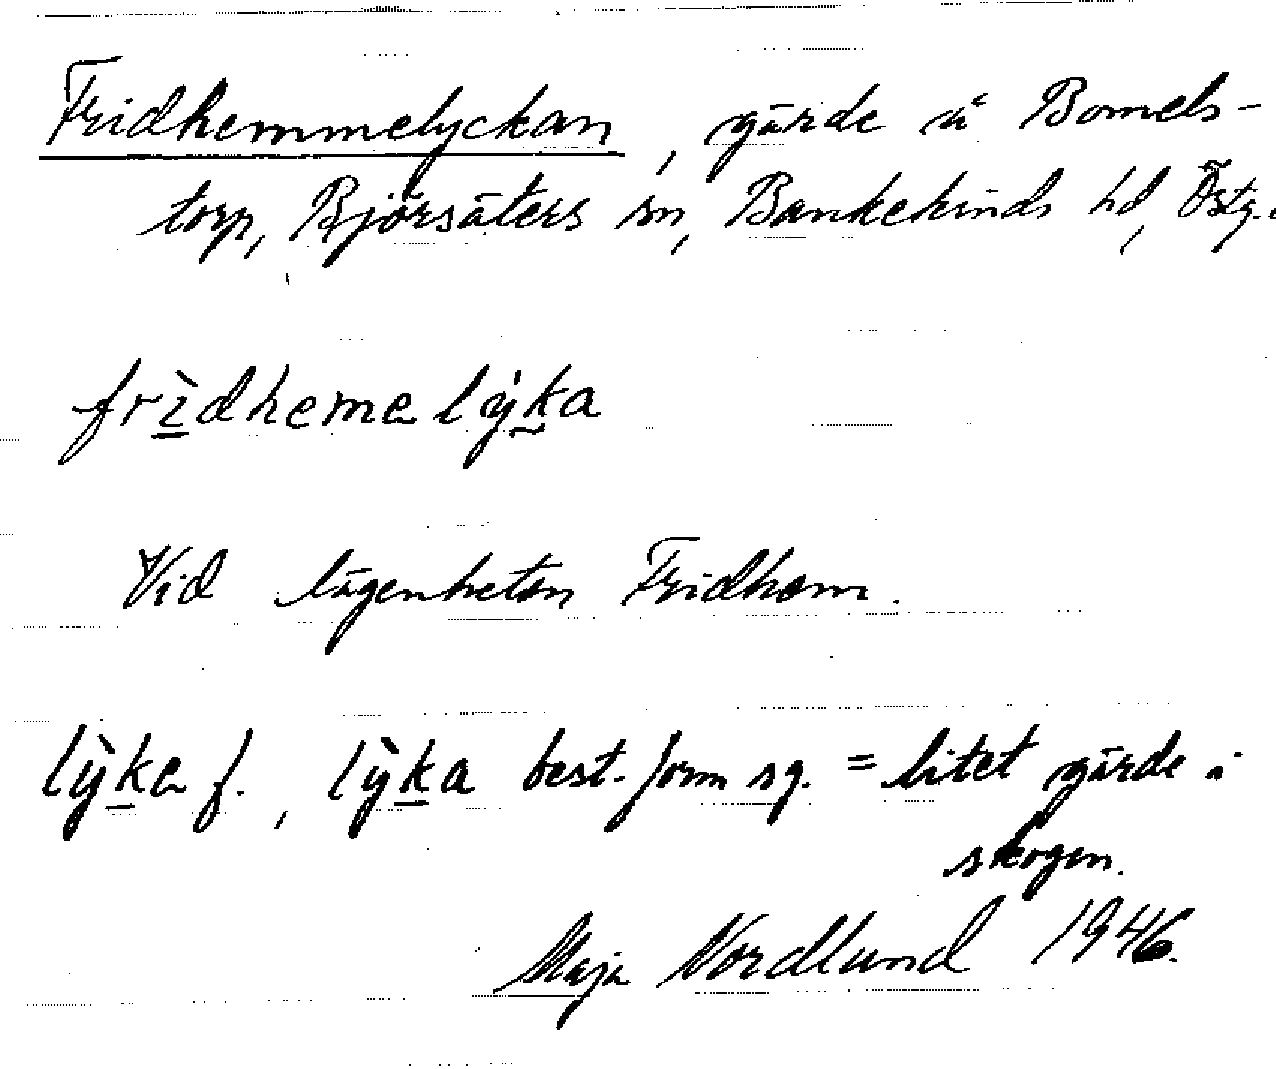 Fridhemmelyckan, gärde å Bomels-
torp, Björsäters sn, Bankekinds hd, Östg.
frìdhemelỳka
Vid lägenheten Fridhem.
lỳka f., lỳka best. form sg. = litet gärde i
skogen.
Maja Nordlund 1946.